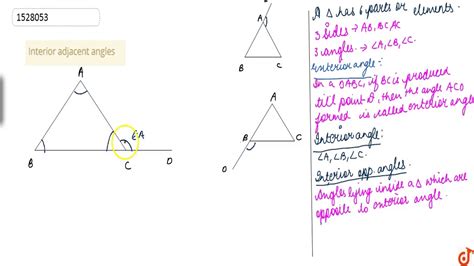 1528053
Interior adjacent angles
A
B
C
D
EA
A
B
C
A
B
C
D
A Δ has 6 parts or elements.
3 sides → AB, BC, AC
3 angles → ∠A, ∠B, ∠C
Exterior angle:
In a ΔABC, if BC is produced
till point D, then the angle ACD
formed is called exterior angle
Interior angle:
∠A, ∠B, ∠C.
Interior opp. angles.
Angles lying inside a Δ which are
opposite to exterior angle.